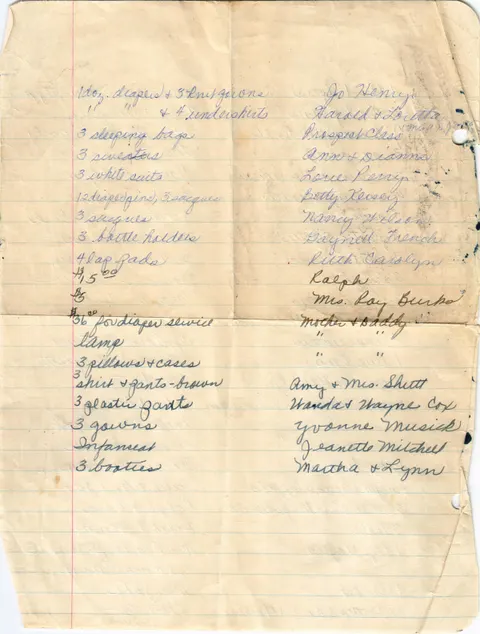 1 doz. diapers & 3 knit gowns Jo Henry
" " & 4 undershirts Harold & Loretta
3 sleeping bags Prospect Class
3 sweaters Ann & Dianne
3 white suits Perry
1 diaper pins, 3 sacques Betty
3 sacques Nancy Wilson
3 bottle holders French
4 lap pads Ruth Carolyn
$15.00 Ralph
$5 Mrs. Ray Burks
$36.00 for diaper service Mother & Daddy
lamp " "
3 pillows & cases " "
shirt & pants - brown Amy & Mrs. Shutt
3 plastic pants Wanda & Wayne Cox
3 gowns Yvonne Musick
Infanseat Jeanette Mitchell
3 booties Martha & Lynn